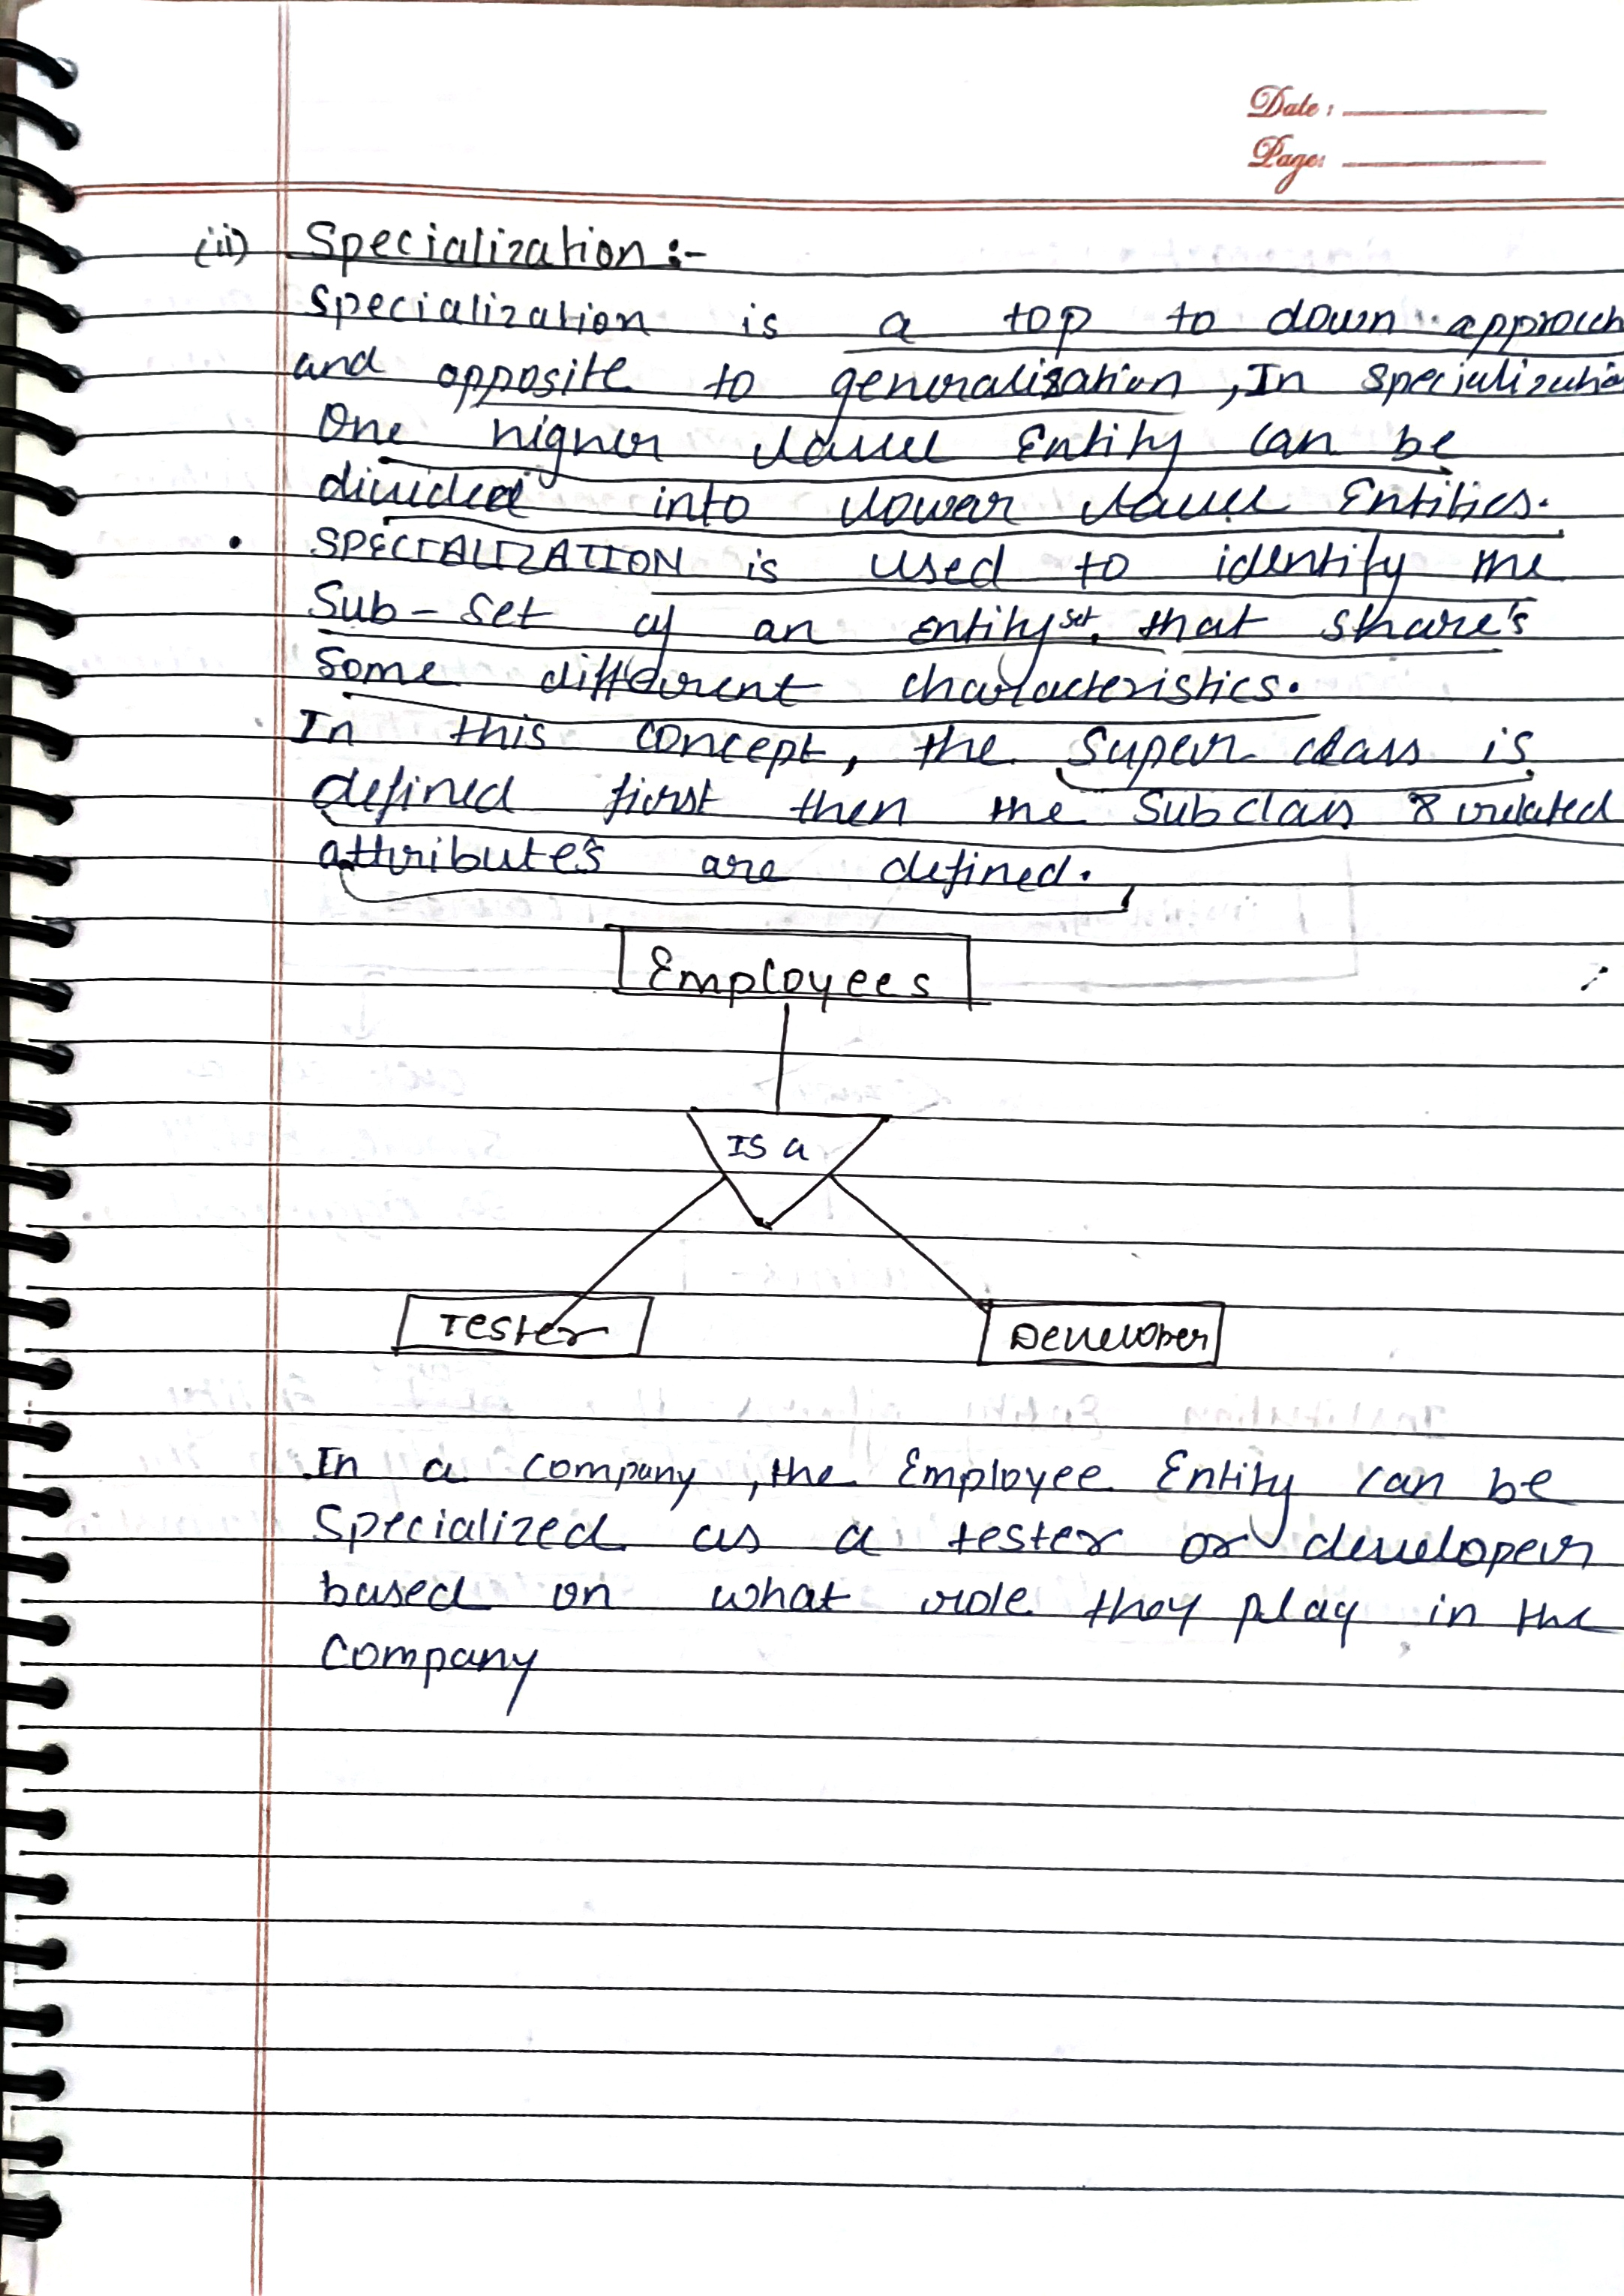 Date :
Page:
(ii) Specialization :-
Specialization is a top to down approch
and opposite to generalization , In specializatio
One higher level Entity can be
divided into lower level Entities.
• SPECIALIZATION is used to identify the
Sub-set of an entity set that share's
some different characteristics.
In this concept, the super class is
defined first then the subclass & related
attribute's are defined.
Employees
IS a
Tester Developer
In a company , the Employee Entity can be
Specialized as a tester or developer
based on what role they play in the
company